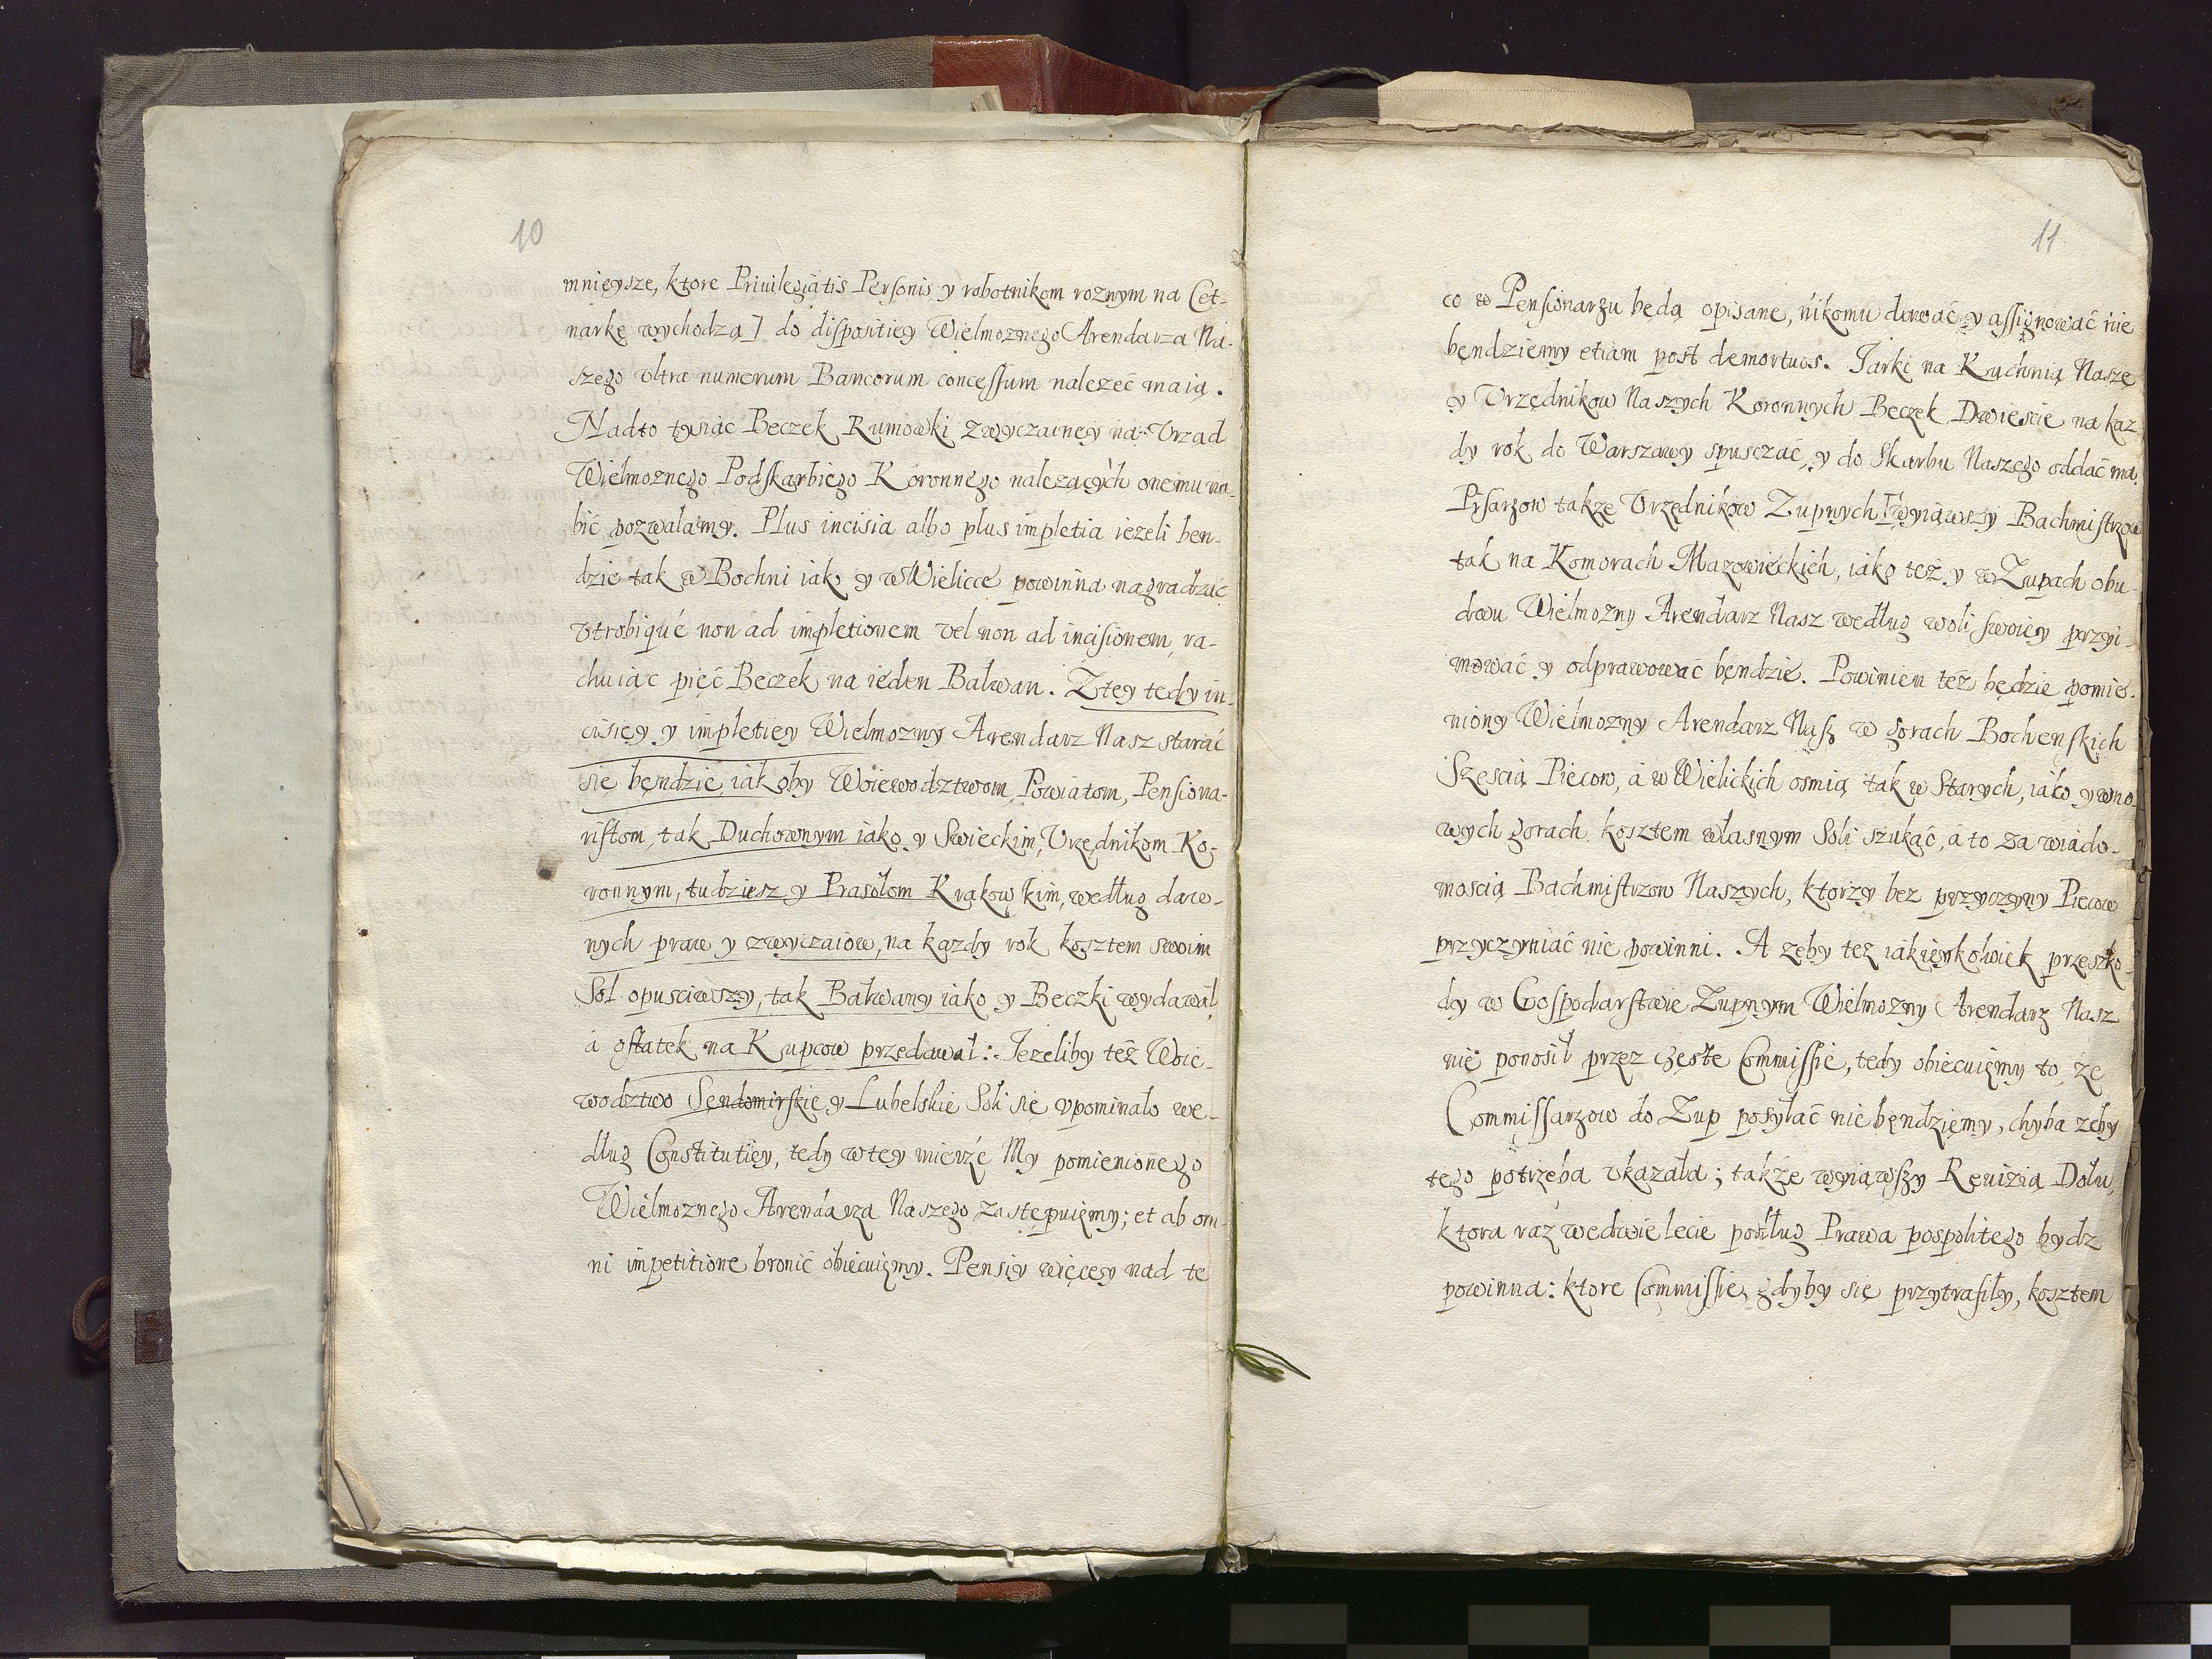 10
mnieysze, ktore Priuilegiatis Personis y robotnikom roznym na Cet-
narkę wychodzą] do dispositiey Wielmoznego Arendarza Na-
szego vltra numerum Bancorum concessum nalezeć maią.
Nadto tysiąc Beczek Rumowki zwyczainey na Vrzad
Wielmoznego Podskarbiego Koronnego nalezących onemu na-
bić pozwalamy. Plus incisia albo plus impletia iezeli ben-
dzie tak w Bochni iako y w Wielicce powinna nagradzać
vtrobiqué non ad impletionem vel non ad incisionem, ra-
chuiąc pięć Beczek na ieden Balwan. Z tey tedy in-
cisiey y impletiey Wielmozny Arendarz Nasz starać
się bęndzie, iakoby Woiewodztwom, Powiatom, Pensiona-
ristom, tak Duchownym iako y Swieckim, Vrzędnikom Ko-
ronnym, tudziesz y Prasołom Krakowskim, według daw-
nych praw y zwyczaiow, na kazdy rok kosztem swoim
Sol opusciwszy, tak Bałwany iako y Beczki wydawał,
a ostatek na Kupcow przedawał: Iezeliby też Woie-
wodztwo Sęndomirskie y Lubelskie Soli się vpominało we-
dług Constitutiey, tedy w tey mierzé My pomienionego
Wielmoznego Arendarza Naszego zastępuięmy; et ab om-
ni impetitione bronić obiecuięmy. Pensiy więcey nad te
11
co w Pensionarzu będą opisane, nikomu dawać y assignować nie
bęndziemy etiam post demortuos. Jarki na Kuchnią Naszę
y Vrzędnikow Naszych Koronnych Beczek Dwiescie na kaz-
dy rok do Warszawy spusczać, y do Skarbu Naszego oddać ma.
Pisarzow takze Vrzędnikow Zupnych [wyiąwszy Bachmistrzow
tak na Komorach Mazowieckich, iako też y w Zupach obu-
dwu Wielmozny Arendarz Nasz według woli swoiey przyi-
mować y odprawować bęndzie. Powinien też będzie pomie-
niony Wielmozny Arendarz Nasz w gorach Bochenskich
Szescią Piecow, a w Wielickich osmią tak w Starych, iako y w no-
wych gorach kosztem własnym Soli szukąć, a to za wiado-
moscią Bachmistrzow Naszych, ktorzy bez przyczyny Piecow
przyczyniać nie powinni. A zeby też iakięykolwiek przeszko-
dy w Gospodarstwie Zupnym Wielmozny Arendarz Nasz
nie ponosił przez częste Commissie, tedy obiecuięmy to, że
Commissarzow do Zup posyłać nie bęndziemy, chyba zeby
tego potrzeba vkazała; także wyiąwszy Rewizią Dołu,
ktora raz we dwie lecie podług Prawa pospolitego bydz
powinna: ktore Commissie gdyby się przytrafiły, kosztem